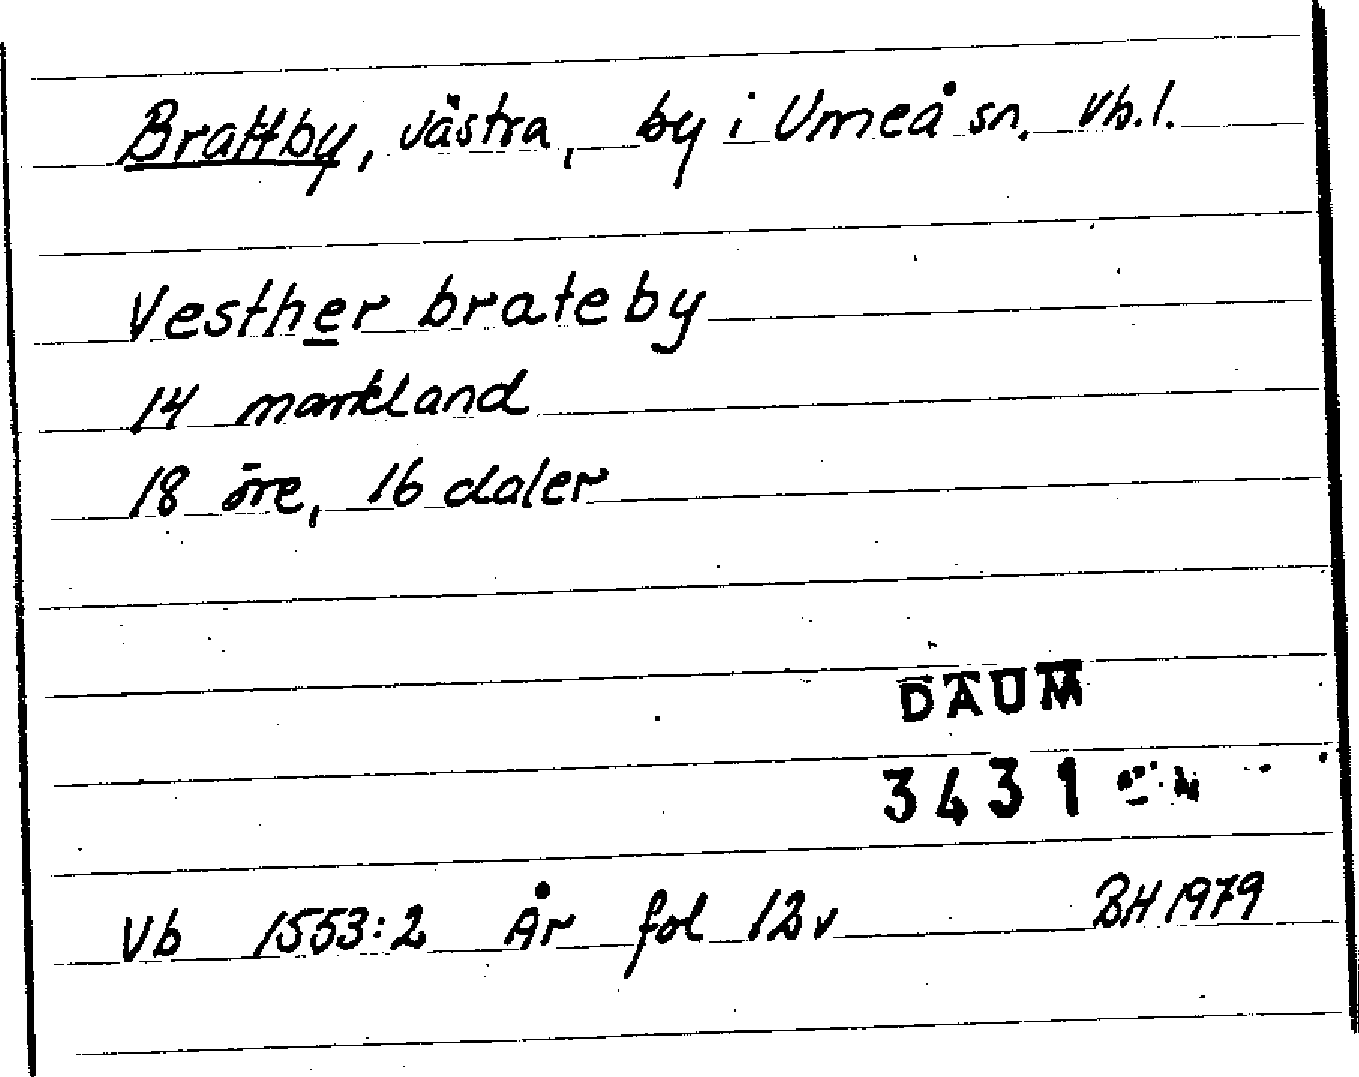 Brattby, västra, by i Umeå sn. Vb.l.
Vesther brateby
14 markland
18 öre, 16 daler
DAUM
3431
Vb 1553:2 År fol 12v BH 1979